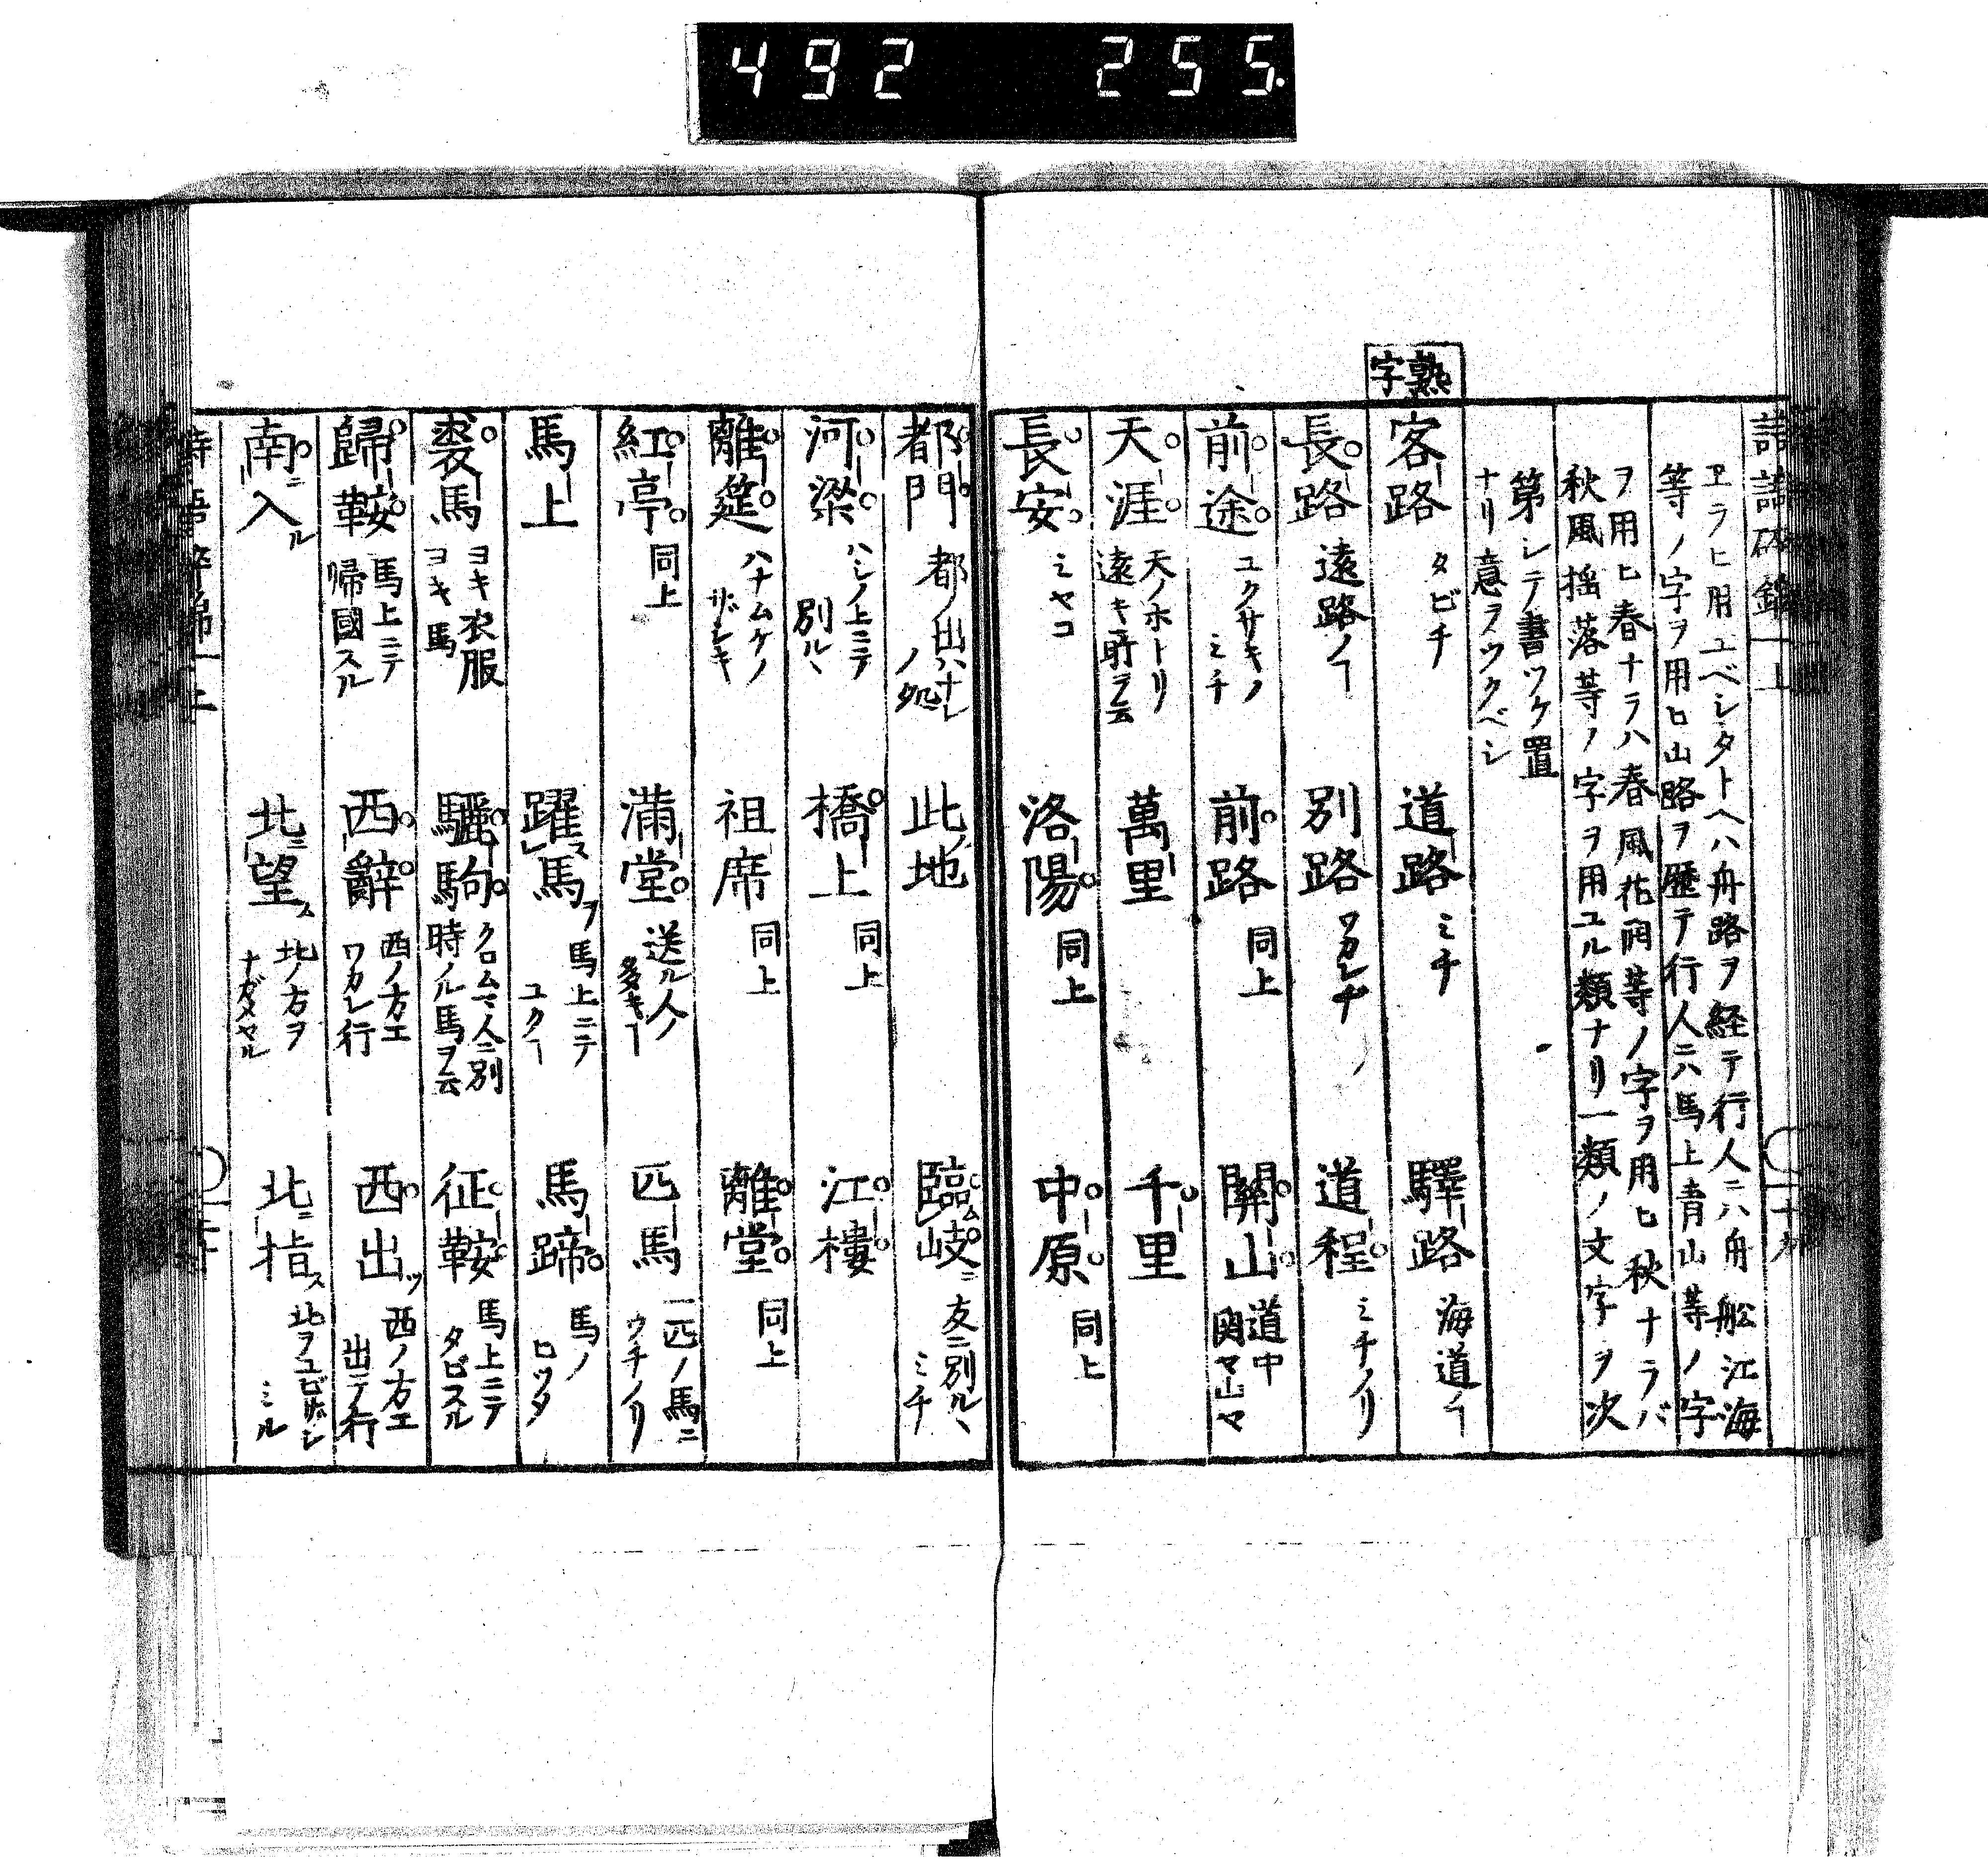 492 255
ヱラヒ用ユベシタトヘハ舟路ヲ経テ行人ニハ舟舩江海
等ノ字ヲ用ヒ山路ヲ歴テ行人ニハ馬上青山等ノ字
ヲ用ヒ春ナラハ春風花雨等ノ字ヲ用ヒ秋ナラバ
秋風揺落等ノ字ヲ用ユル類ナリ一類ノ文字ヲ次
第シテ書ツケ置
ナリ意ヲツクベシ
熟字
客路 タビチ 道路 ミチ 驛路 海道ノヿ
長路 遠路ノヿ 別路 ワカレヂ 道程 ミチノリ
前途 ユクサキノミチ 前路 同上 關山 道中関ヤマ山ヤマ
天涯 天ノホトリ遠キ所ヲ云 萬里 千里
長安 ミヤコ 洛陽 同上 中原 同上
都門 都ノ出ハナレノ処 此地 臨岐 友ニ別ルヽミチ
河梁 ハシノ上ニテ別ルヽ 橋上 同上 江樓
離筵 ハナムケノザシキ 祖席 同上 離堂 同上
紅亭 同上 滿堂 送ル人ノ多キヿ 匹馬 一匹ノ馬ニウチノリ
馬上 躍馬 馬上ニテユクヿ 馬蹄 馬ノヒヅメ
裘馬 ヨキ衣服ヨキ馬 驪駒 クロムマ人ニ別時ノル馬ヲ云 征鞍 馬上ニテタビスル
歸鞍 馬上ニテ帰國スル 西辭 西ノ方エワカレ行 西出 西ノ方エ出テ行
南入 北望 北ノ方ヲナガメヤル 北指 北ヲユビザシミル